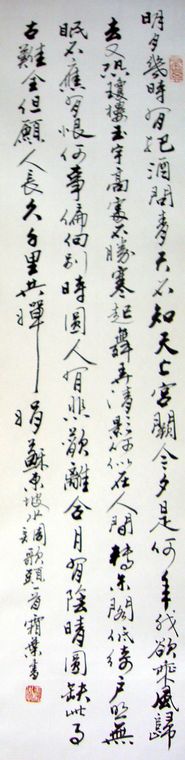 明月幾時有把酒問青天不知天上宮闕今夕是何年我欲乘風歸
去又恐瓊樓玉宇高處不勝寒起舞弄清影何似在人間轉朱閣低綺戶照無
眠不應有恨何事偏向別時圓人有悲歡離合月有陰晴圓缺此事
古難全但願人長久千里共嬋娟 蘇東坡水調歌頭首霜葉書